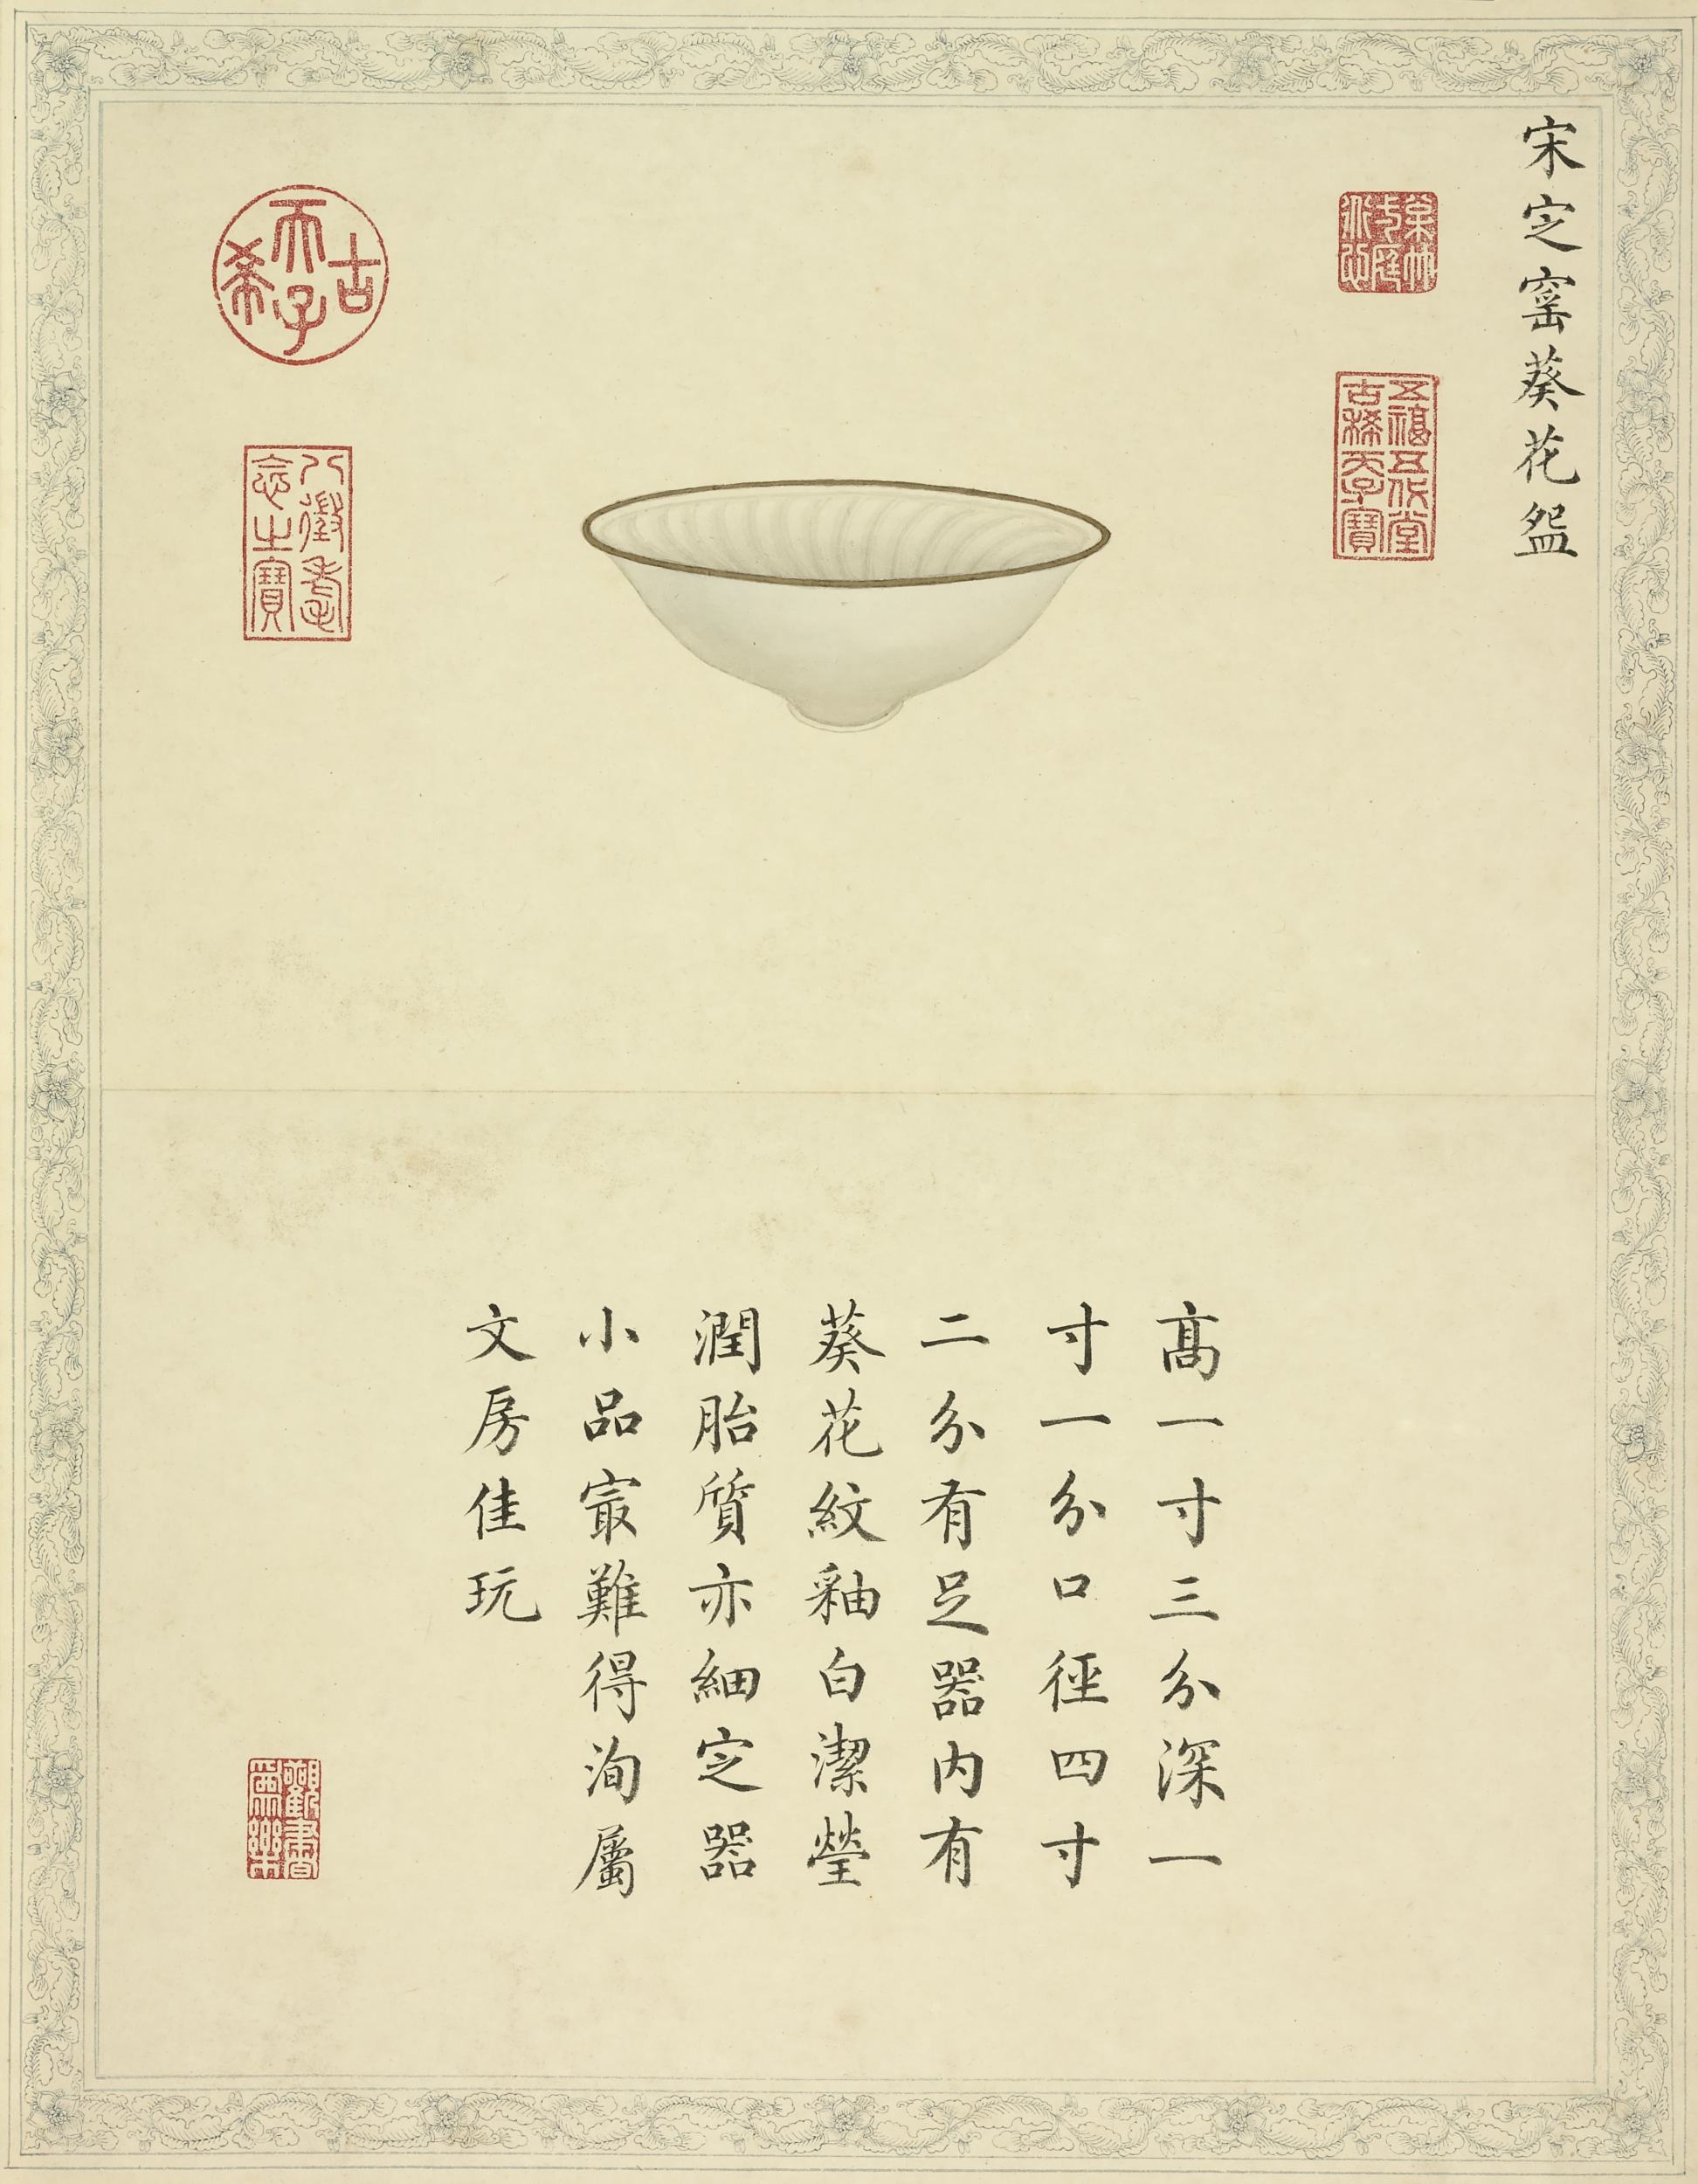 宋定窰葵花盌
五福五代堂
古稀天子寶
古希天子
八徵耄
念之寶
高一寸三分深一
寸一分口徑四寸
二分有足器内有
葵花紋釉白潔瑩
潤胎質亦細定器
小品冣難得洵屬
文房佳玩